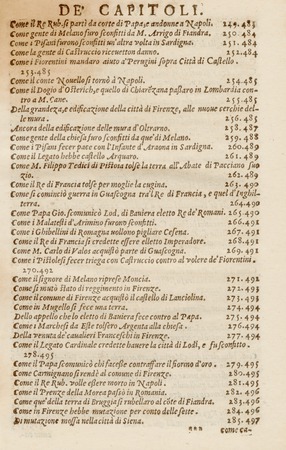 DE' CAPITOLI.
Come il Re Rub. si partì da corte di Papa, e andonne a Napoli. 249.483
Come gente di Melano furo sconfitti da M. Arrigo di Fiandra. 250.484
Come i Pisani furono sconfitti un'altra volta in Sardigna. 251.484
Come la gente di Castruccio ricevetton danno. 252.484
Come i Fiorentini mandaro aiuto a' Perugini sopra Città di Castello.
253.485
Come il conte Novello si tornò à Napoli. 254.485
Come il Dogio d'Osterich, e quello di Chiarézana passaro in Lombardia con-
tro a M. Cane. 255.485
Della grandezza, e edificazione della città di Firenze, alle nuove cerchie del-
le mura. 256.485
Ancora della edificazione delle mura d'Oltrarno. 258.487
Come gente della chiesa furo sconfitti da que' di Melano. 259.488
Come i Pisani fecer pace con l'Infante d'Araona in Sardigna. 260.489
Come il Legato hebbe castello Arquaro. 261.489
Come M. Filippo Tedici di Pistoia tolse la terra all'Abate di Pacciano suo
zio. 262.489
Come il Re di Francia tolse per moglie la cugina. 263.490
Come si cominciò guerra in Guascogna tra'l Re di Francia, e quel d'Inghil-
terra. 264.490
Come Papa Gio. scomunicò Lod. di Baviera eletto Re de' Romani. 265.490
Come i Malatesti d'Arimino furono sconfitti. 266.491
Come i Ghibellini di Romagna vollono pigliare Cesena. 267.491
Come il Re di Francia si credette essere eletto Imperadore. 268.491
Come M. Carlo di Valos acquistò parte di Guascogna. 269.491
Come i Pistolesi fecer triega con Castruccio contro al volere de' Fiorentini.
270.492
Come il signore di Melano riprese Moncia. 271.492
Come si mutò stato di reggimento in Firenze. 271.492
Come il comune di Firenze acquistò il castello di Lanciolina. 273.493
Come in Mugello si fece una terra. 274.493
Dello appello che lo eletto di Baviera fece contro al Papa. 275.494
Come i Marchesi da Este tolsero Argenta alla chiesa. 276.494
Della venuta de' cavalieri Franceschi in Firenze. 277.494
Come il Legato Cardinale credette havere la città di Lodi, e fu sconfitto.
278.495
Come il Papa scomunicò chi facesse contraffare il fiorino d'oro. 279.495
Come Carmignano si rendè al comune di Firenze. 280.495
Come il Re Rub. volle essere morto in Napoli. 281.495
Come il Prenze della Morea passò in Romania. 282.495
Come que' della terra di Bruggia si rubellaro al côte di Fiandra. 283.496
Come in Firenze hebbe mutazione per conto delle sette. 284.496
Di mutazione mossa nella città di Siena. 285.497
come ca-